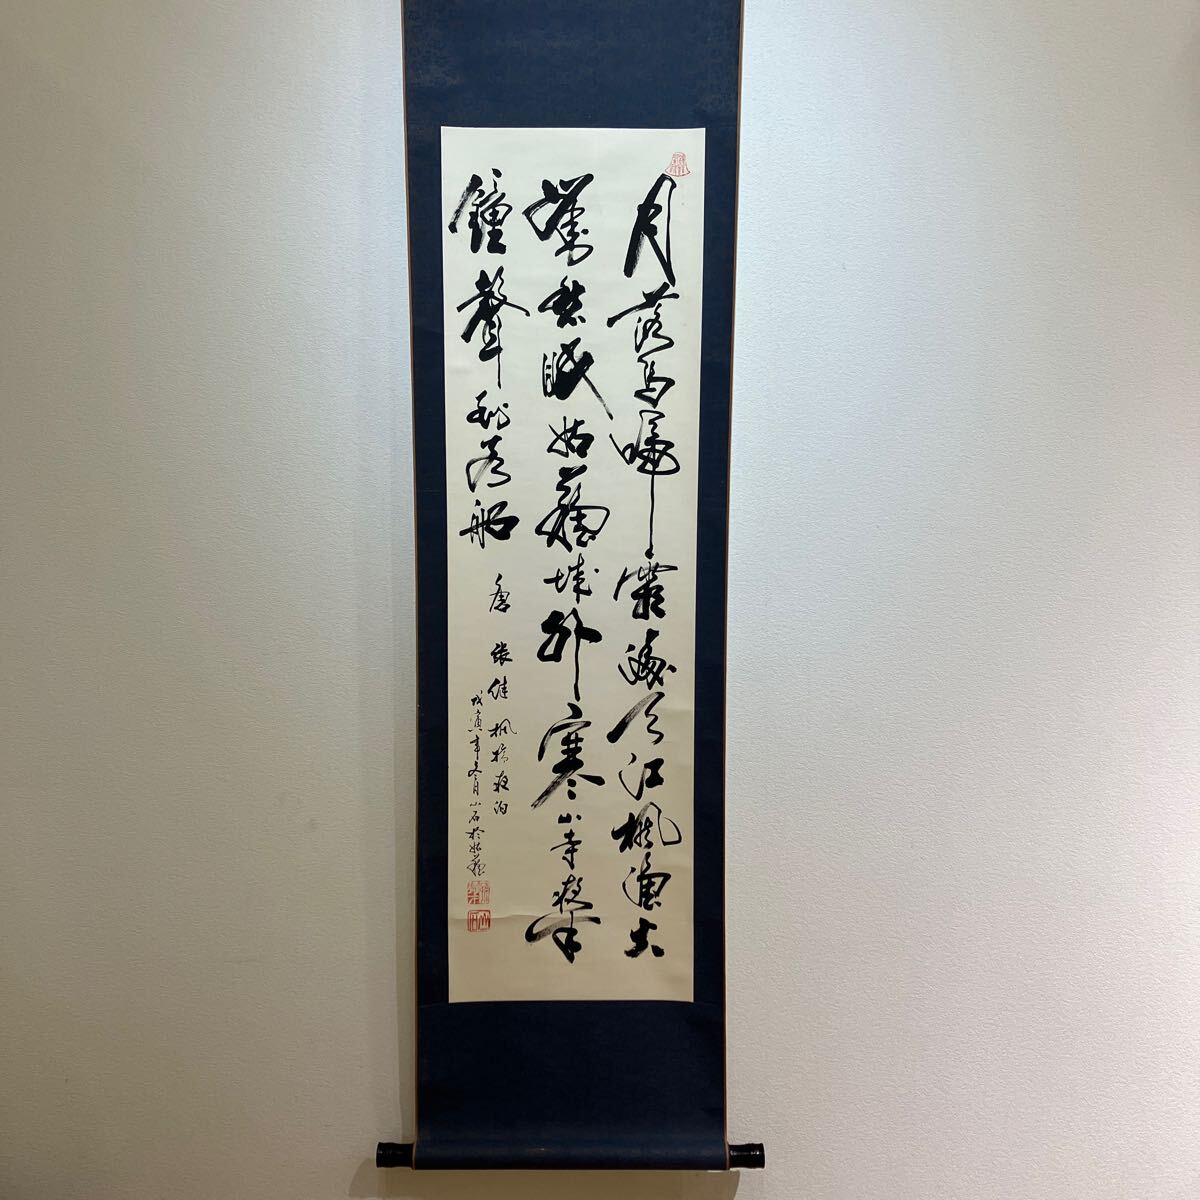 月落烏啼霜滿天江楓漁火
對愁眠姑蘇城外寒山寺夜半
鐘聲到客船
唐 張継 楓橋夜泊
戊寅年冬月小石於姑蘇